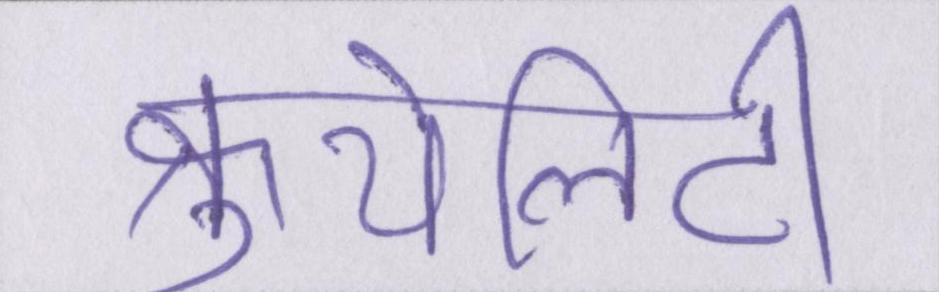 क्रुयेलिटी